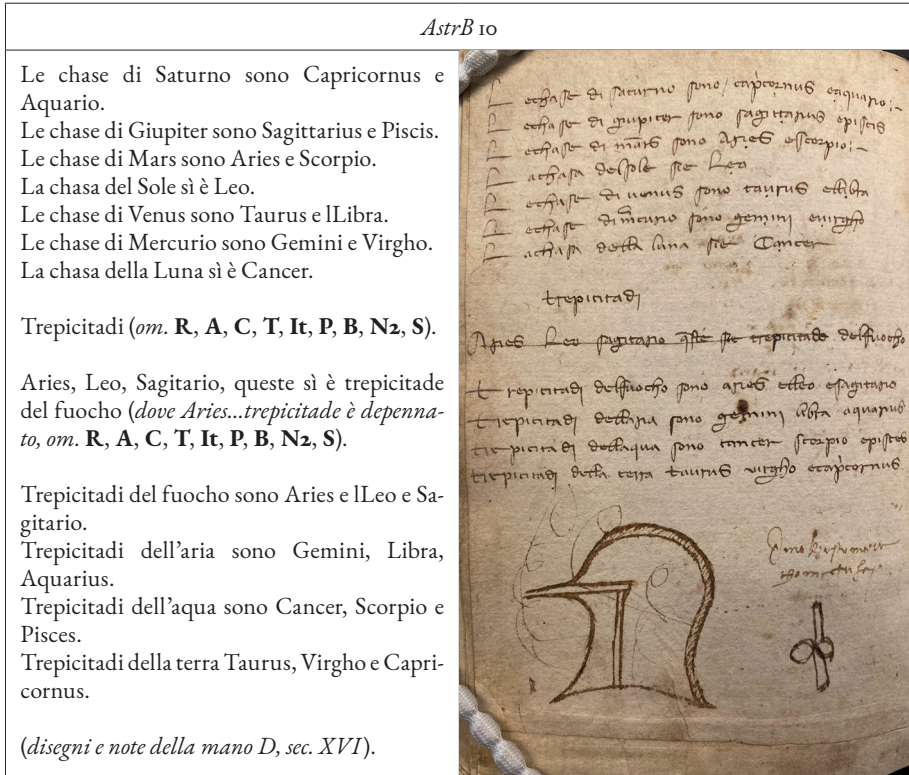 AstrB 10
Le chase di Saturno sono Capricornus e
Aquario.
Le chase di Giupiter sono Sagittarius e Piscis.
Le chase di Mars sono Aries e Scorpio.
La chasa del Sole sì è Leo.
Le chase di Venus sono Taurus e lLibra.
Le chase di Mercurio sono Gemini e Virgho.
La chasa della Luna sì è Cancer.
Trepicitadi (om. R, A, C, T, It, P, B, N2, S).
Aries, Leo, Sagitario, queste sì è trepicitade
del fuocho (dove Aries...trepicitade è depenna-
to, om. R, A, C, T, It, P, B, N2, S).
Trepicitadi del fuocho sono Aries e lLeo e Sa-
gitario.
Trepicitadi dell'aria sono Gemini, Libra,
Aquarius.
Trepicitadi dell'aqua sono Cancer, Scorpio e
Pisces.
Trepicitadi della terra Taurus, Virgho e Capri-
cornus.
(disegni e note della mano D, sec. XVI).
L echase di saturno sono capcornus eaquario
L echase di giupiter sono sagittarius episcis
L echase di mars sono Aries escorpio
L achasa delsole sie Leo
L echase di uenus sono taurus ellibra
L echase dimcurio sono gemini euirgho
L achasa della luna sie Cancer
trepicitadi
Aries Leo sagitario qste sie trepicitade delfuocho
trepicitadi delfuocho sono aries elleo esagitario
trepicitadi dellaria sono gemini libra aquarius
trepicitadi dellaqua sono cancer scorpio episces
trepicitadi della terra taurus uirgho ecapcornus